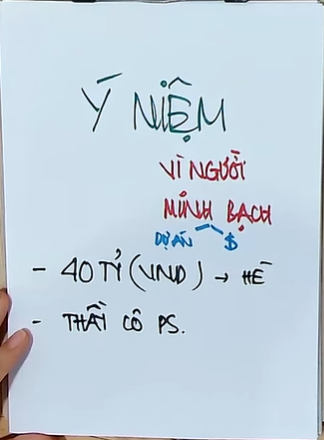 Ý NIỆM
VÌ NGƯỜI
MINH BẠCH
DỰ ÁN $
- 40 TỶ (VND) → HÈ
- THẦY CÔ PS.